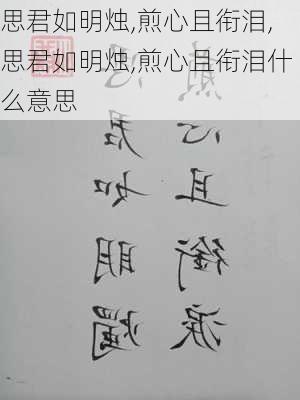 思君如明烛,煎心且衔泪,
思君如明烛,煎心且衔泪什
么意思
思君如明燭
煎心且銜淚